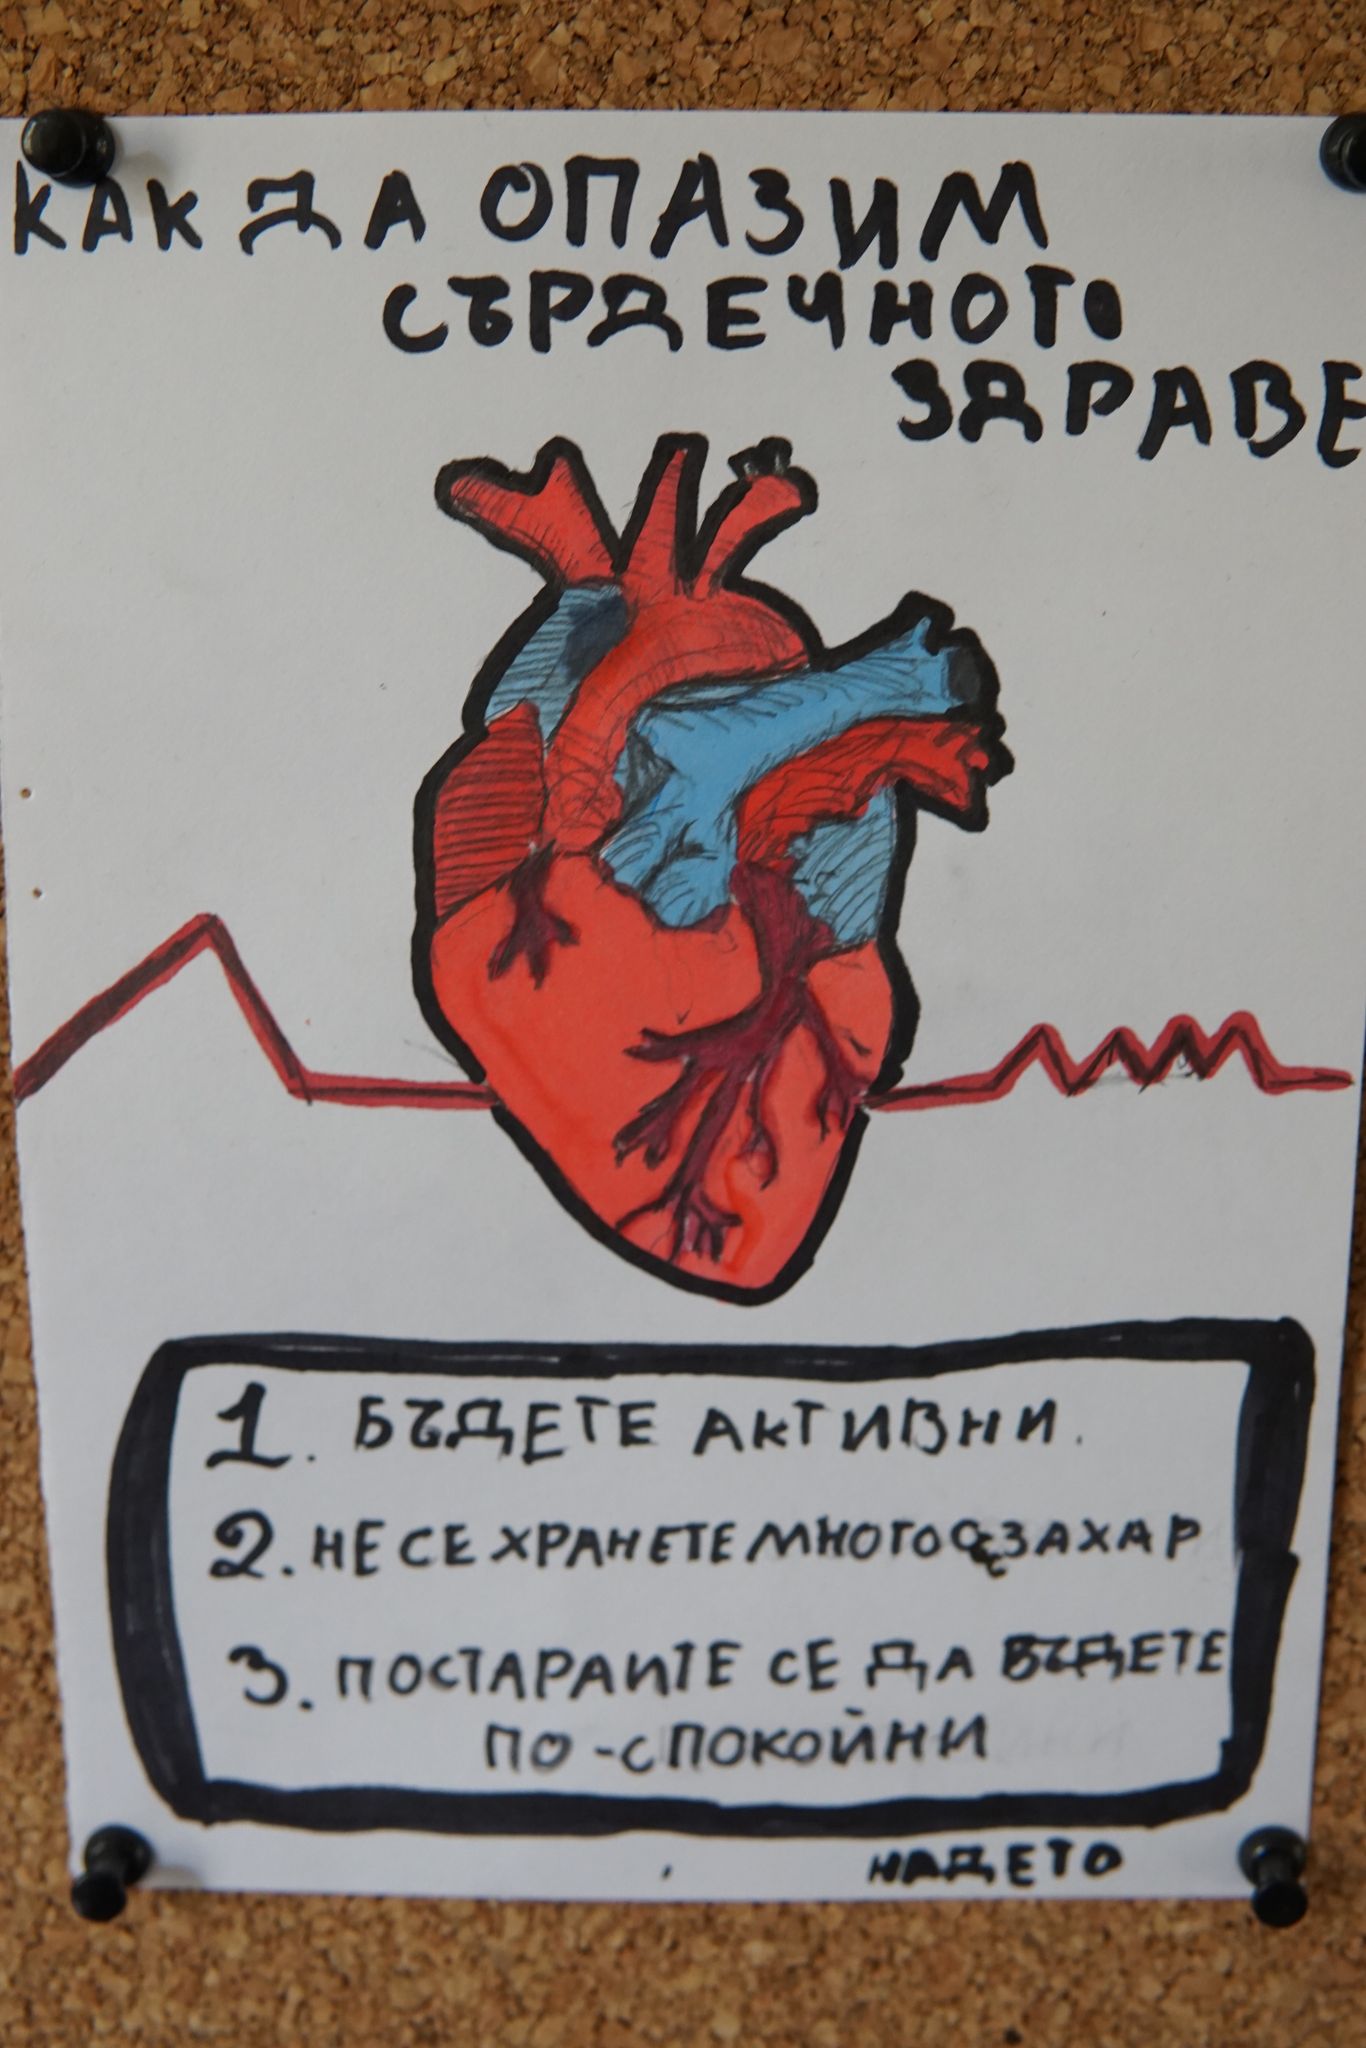 КАК ДА ОПАЗИМ
СЪРДЕЧНОТО
ЗДРАВЕ
1. БЪДЕТЕ АКТИВНИ.
2. НЕ СЕ ХРАНЕТЕ МНОГО СЪС ЗАХАР
3. ПОСТАРАИТЕ СЕ ДА БЪДЕТЕ
ПО-СПОКОЙНИ
НАДЕТО